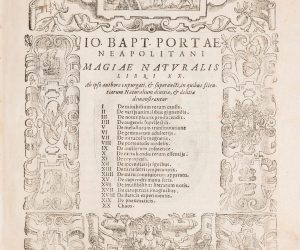 IO. BAPT. PORTAE
NEAPOLITANI
MAGIAE NATVRALIS
LIBRI XX.
Ab ipso authore expurgati, & superaucti, in quibus scien-
tiarum Naturalium divitiæ, & delitiæ
demonstrantur
I De mirabilium rerum causis.
II De varijs animalibus gignendis.
III De novis plantis producendis.
IIII De augenda supellectili.
V De metallorum transmutatione
VI De gemmarum adulterijs.
VII De miraculis magnetis.
VIII De portentosis medelis.
IX De mulierum cosmetice.
X De extrahendis rerum essentijs.
XI De myropoeia.
XII De incendiarijs ignibus.
XIII De raris ferri temperaturis.
XIIII De miro conviviorum apparatu.
XV De capiendis manu feris.
XVI De invisibilibus literarum notis.
XVII De catoptricis imaginibus.
XVIII De staticis experimentis.
XIX De pneumaticis.
XX Chaos.